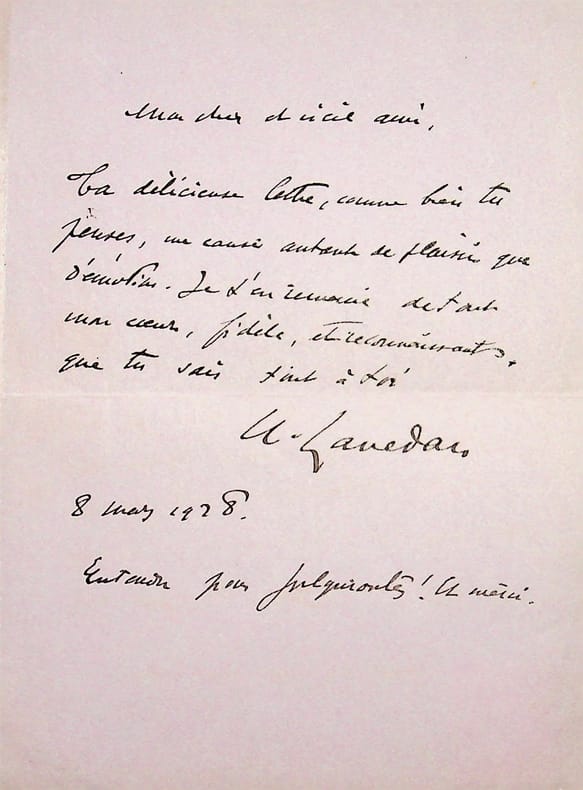 Mon cher et vieil ami,
Ta délicieuse lettre, comme bien tu
penses, me cause autant de plaisir que
d'émotion. Je t'en remercie de tout
mon cœur, fidèle, et reconnaissant,
que tu sais tout à toi
H. Lavedan
8 mars 1928.
Entendu pour ! Et merci.